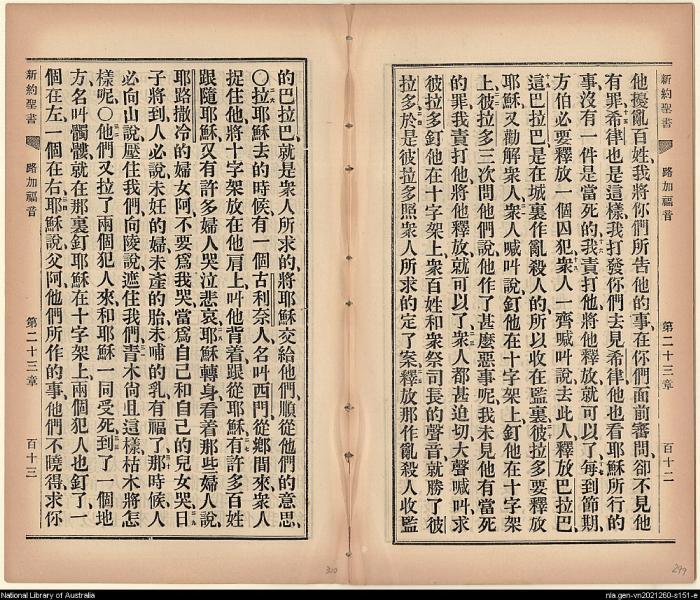 新約聖書 路加福音 第二十三章 百十二
他擾亂百姓、我將你們所告他的事、在你們面前審問、卻不見他
有罪、希律也是這樣、我打發你們去見希律、他也看耶穌所行的
事、沒有一件是當死的、我責打他、將他釋放就可以了、每到節期、
方伯必要釋放一個囚犯、衆人一齊喊叫說、去此人、釋放巴拉巴、
這巴拉巴是在城裏作亂殺人的、所以收在監裏、彼拉多要釋放
耶穌、又勸解衆人、衆人喊叫說、釘他在十字架上、釘他在十字架
上、彼拉多三次問他們說、他作了甚麼惡事呢、我未見他有當死
的罪、我責打他、將他釋放就可以了、衆人都甚迫切、大聲喊叫、求
彼拉多釘他在十字架上、衆百姓和衆祭司長的聲音就勝了、彼
拉多於是彼拉多照衆人所求的定了案、釋放那作亂殺人收監
的巴拉巴、就是衆人所求的、將耶穌交給他們、順從他們的意思、
〇拉耶穌去的時候、有一個古利奈人、名叫西門、從鄉間來、衆人
捉住他、將十字架放在他肩上、叫他背着跟從耶穌、有許多百姓
跟隨耶穌、又有許多婦人哭泣悲哀、耶穌轉身看着那些婦人說、
耶路撒冷的婦女阿、不要爲我哭、當爲自己和自己的兒女哭、日
子將到、人必說、未妊的婦、未產的胎、未哺的乳有福了、那時候人
必向山說、壓住我們、向陵說、遮住我們、靑木尙且這樣、枯木將怎
樣呢、〇他們又拉了兩個犯人來、和耶穌一同受死、到了一個地
方、名叫髑髏、就在那裏釘耶穌在十字架上、兩個犯人也釘了、一
個在左、一個在右、耶穌說、父阿、他們所作的事、他們不曉得、求你
新約聖書 路加福音 第二十三章 百十三
300
299
National Library of Australia
nla.gen-vn2021260-s151-e